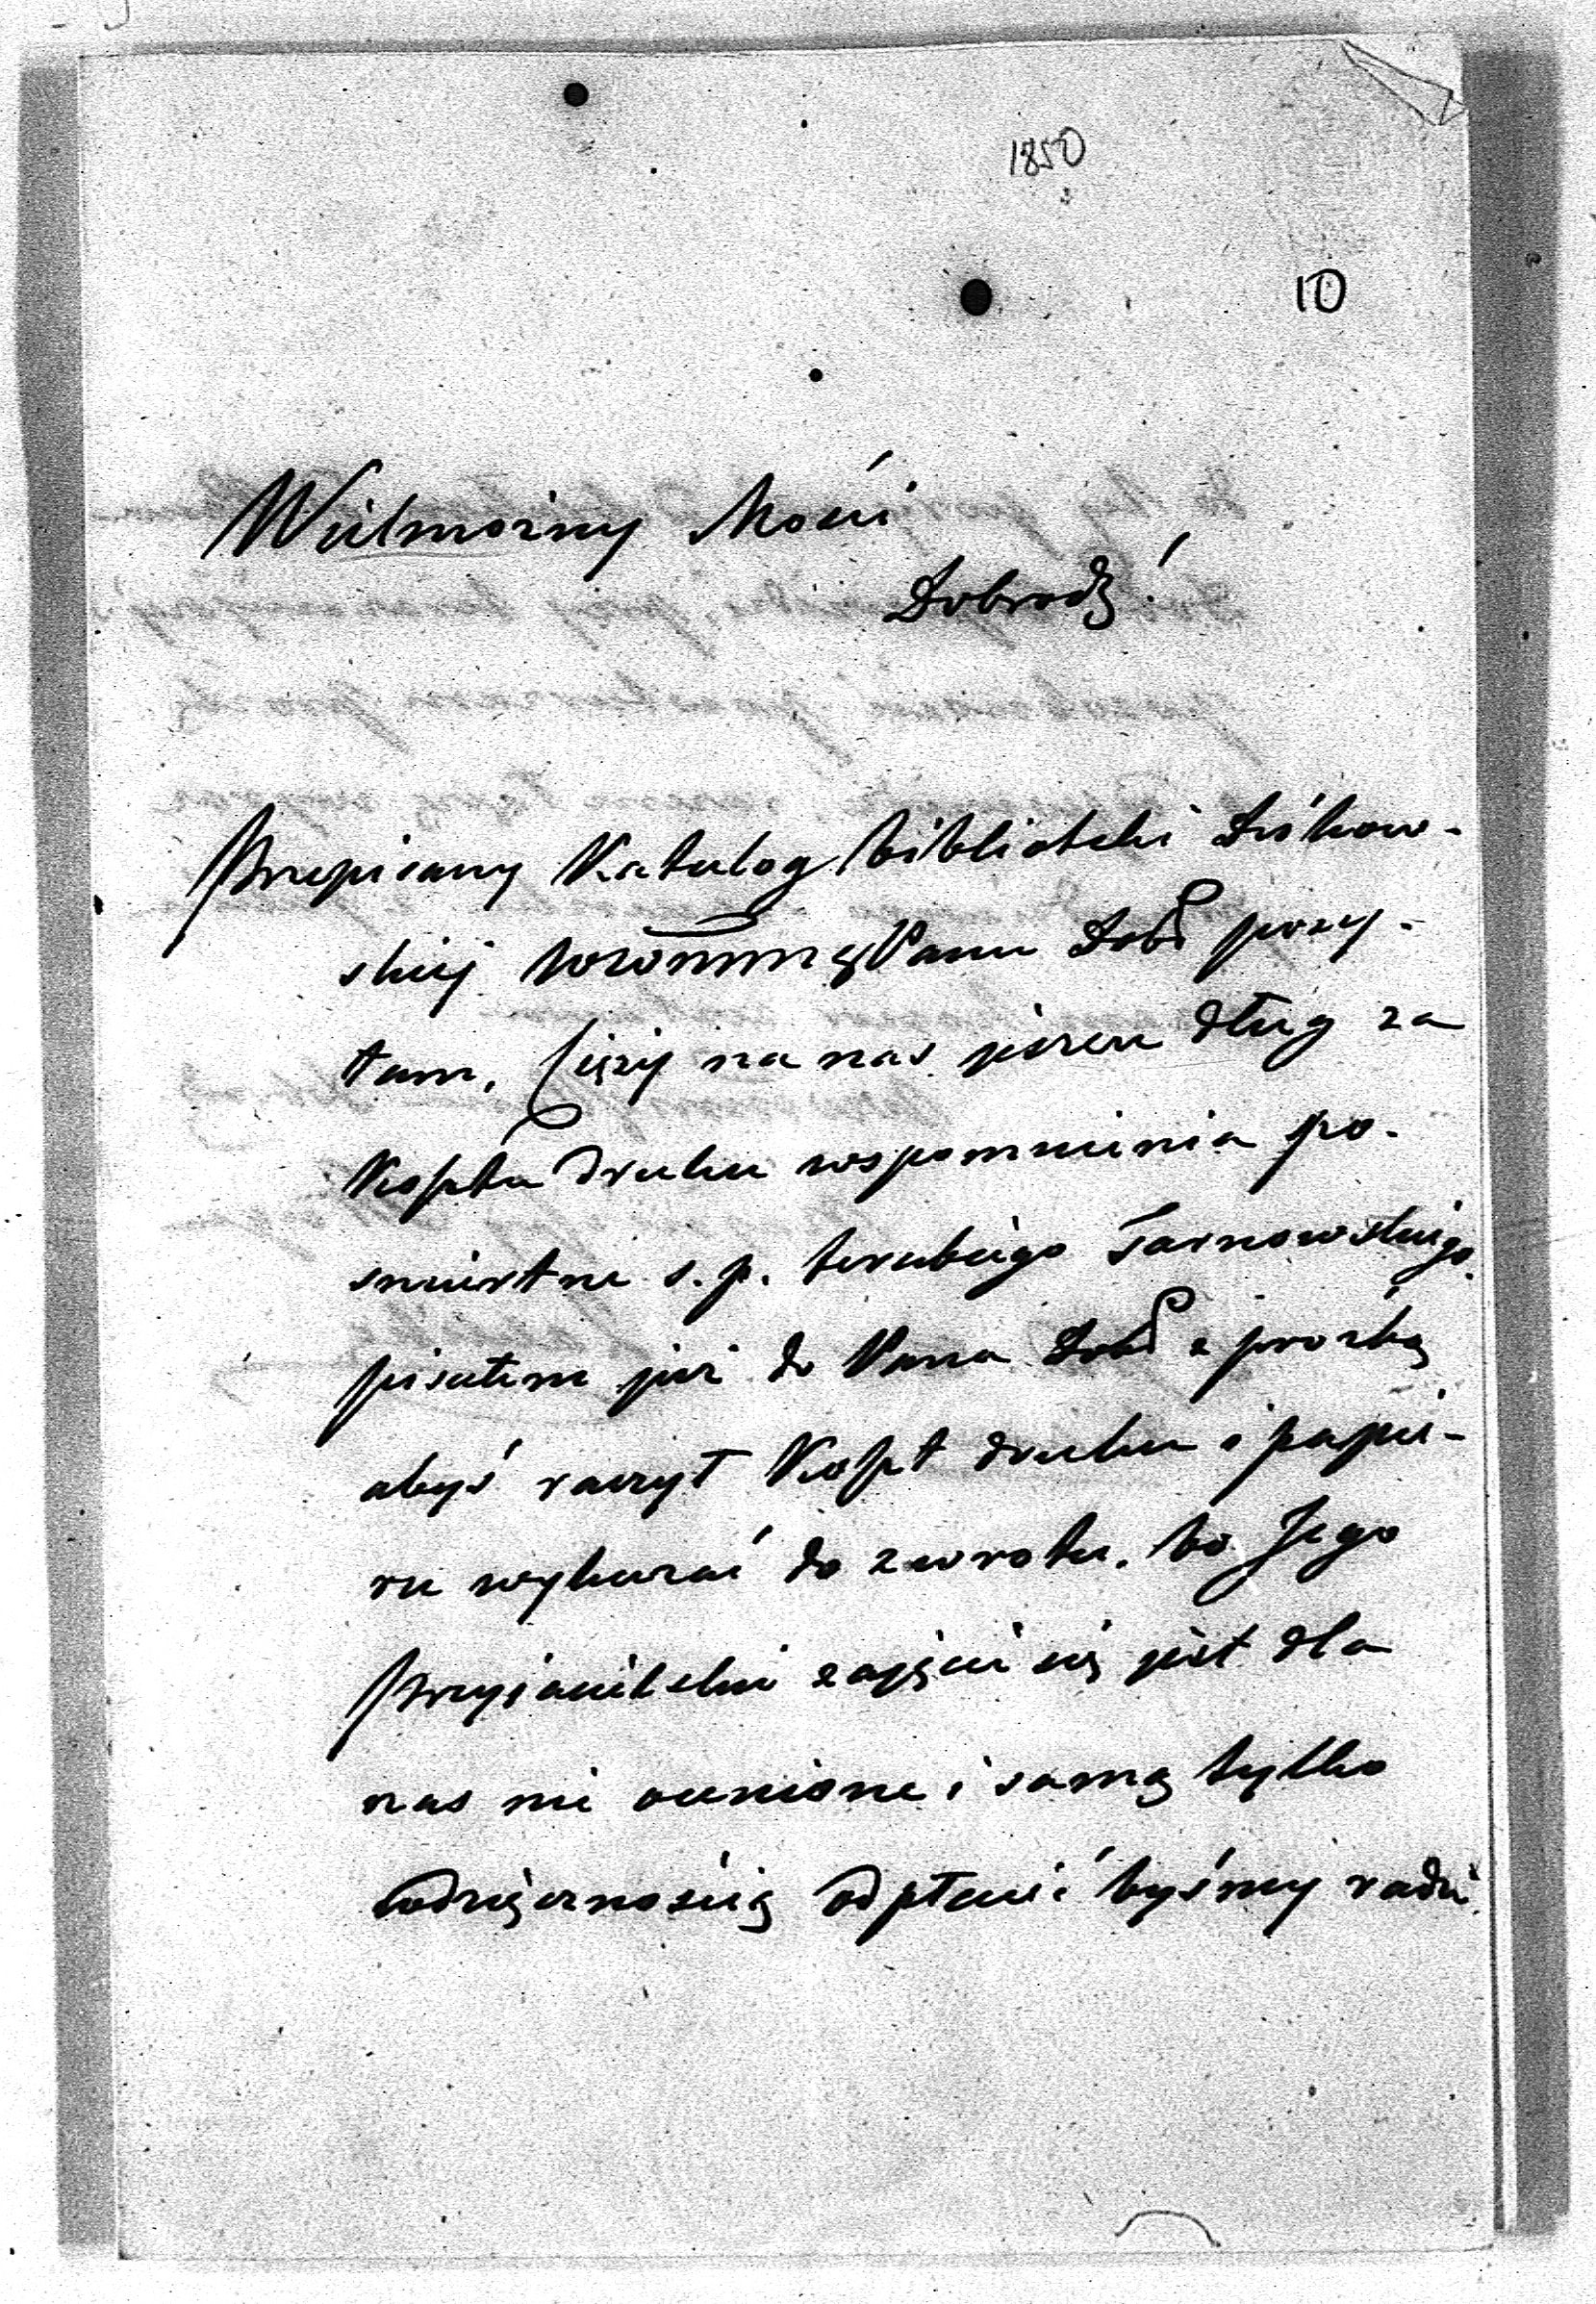 1850
10
Wielmożny Mości
Dobrodz!
Przepisany Katalog biblioteki Dzikow-
skiej Panu Dobr przy-
tam. Cięży na nas jeszcze dług za
Koszta druku wspomnienia po-
śmiertne s.p. hrabiego Tarnowskiego.
pisałem już do Pana Dobr z prośbą
abyś raczył Koszt druku i papie-
ru wykazać do zwrotu. bo Jego
przyjacielskie zajęcie się jest dla
nas nie ocenione i samą tylko
wdzięcznością odpłacić byśmy radzi.